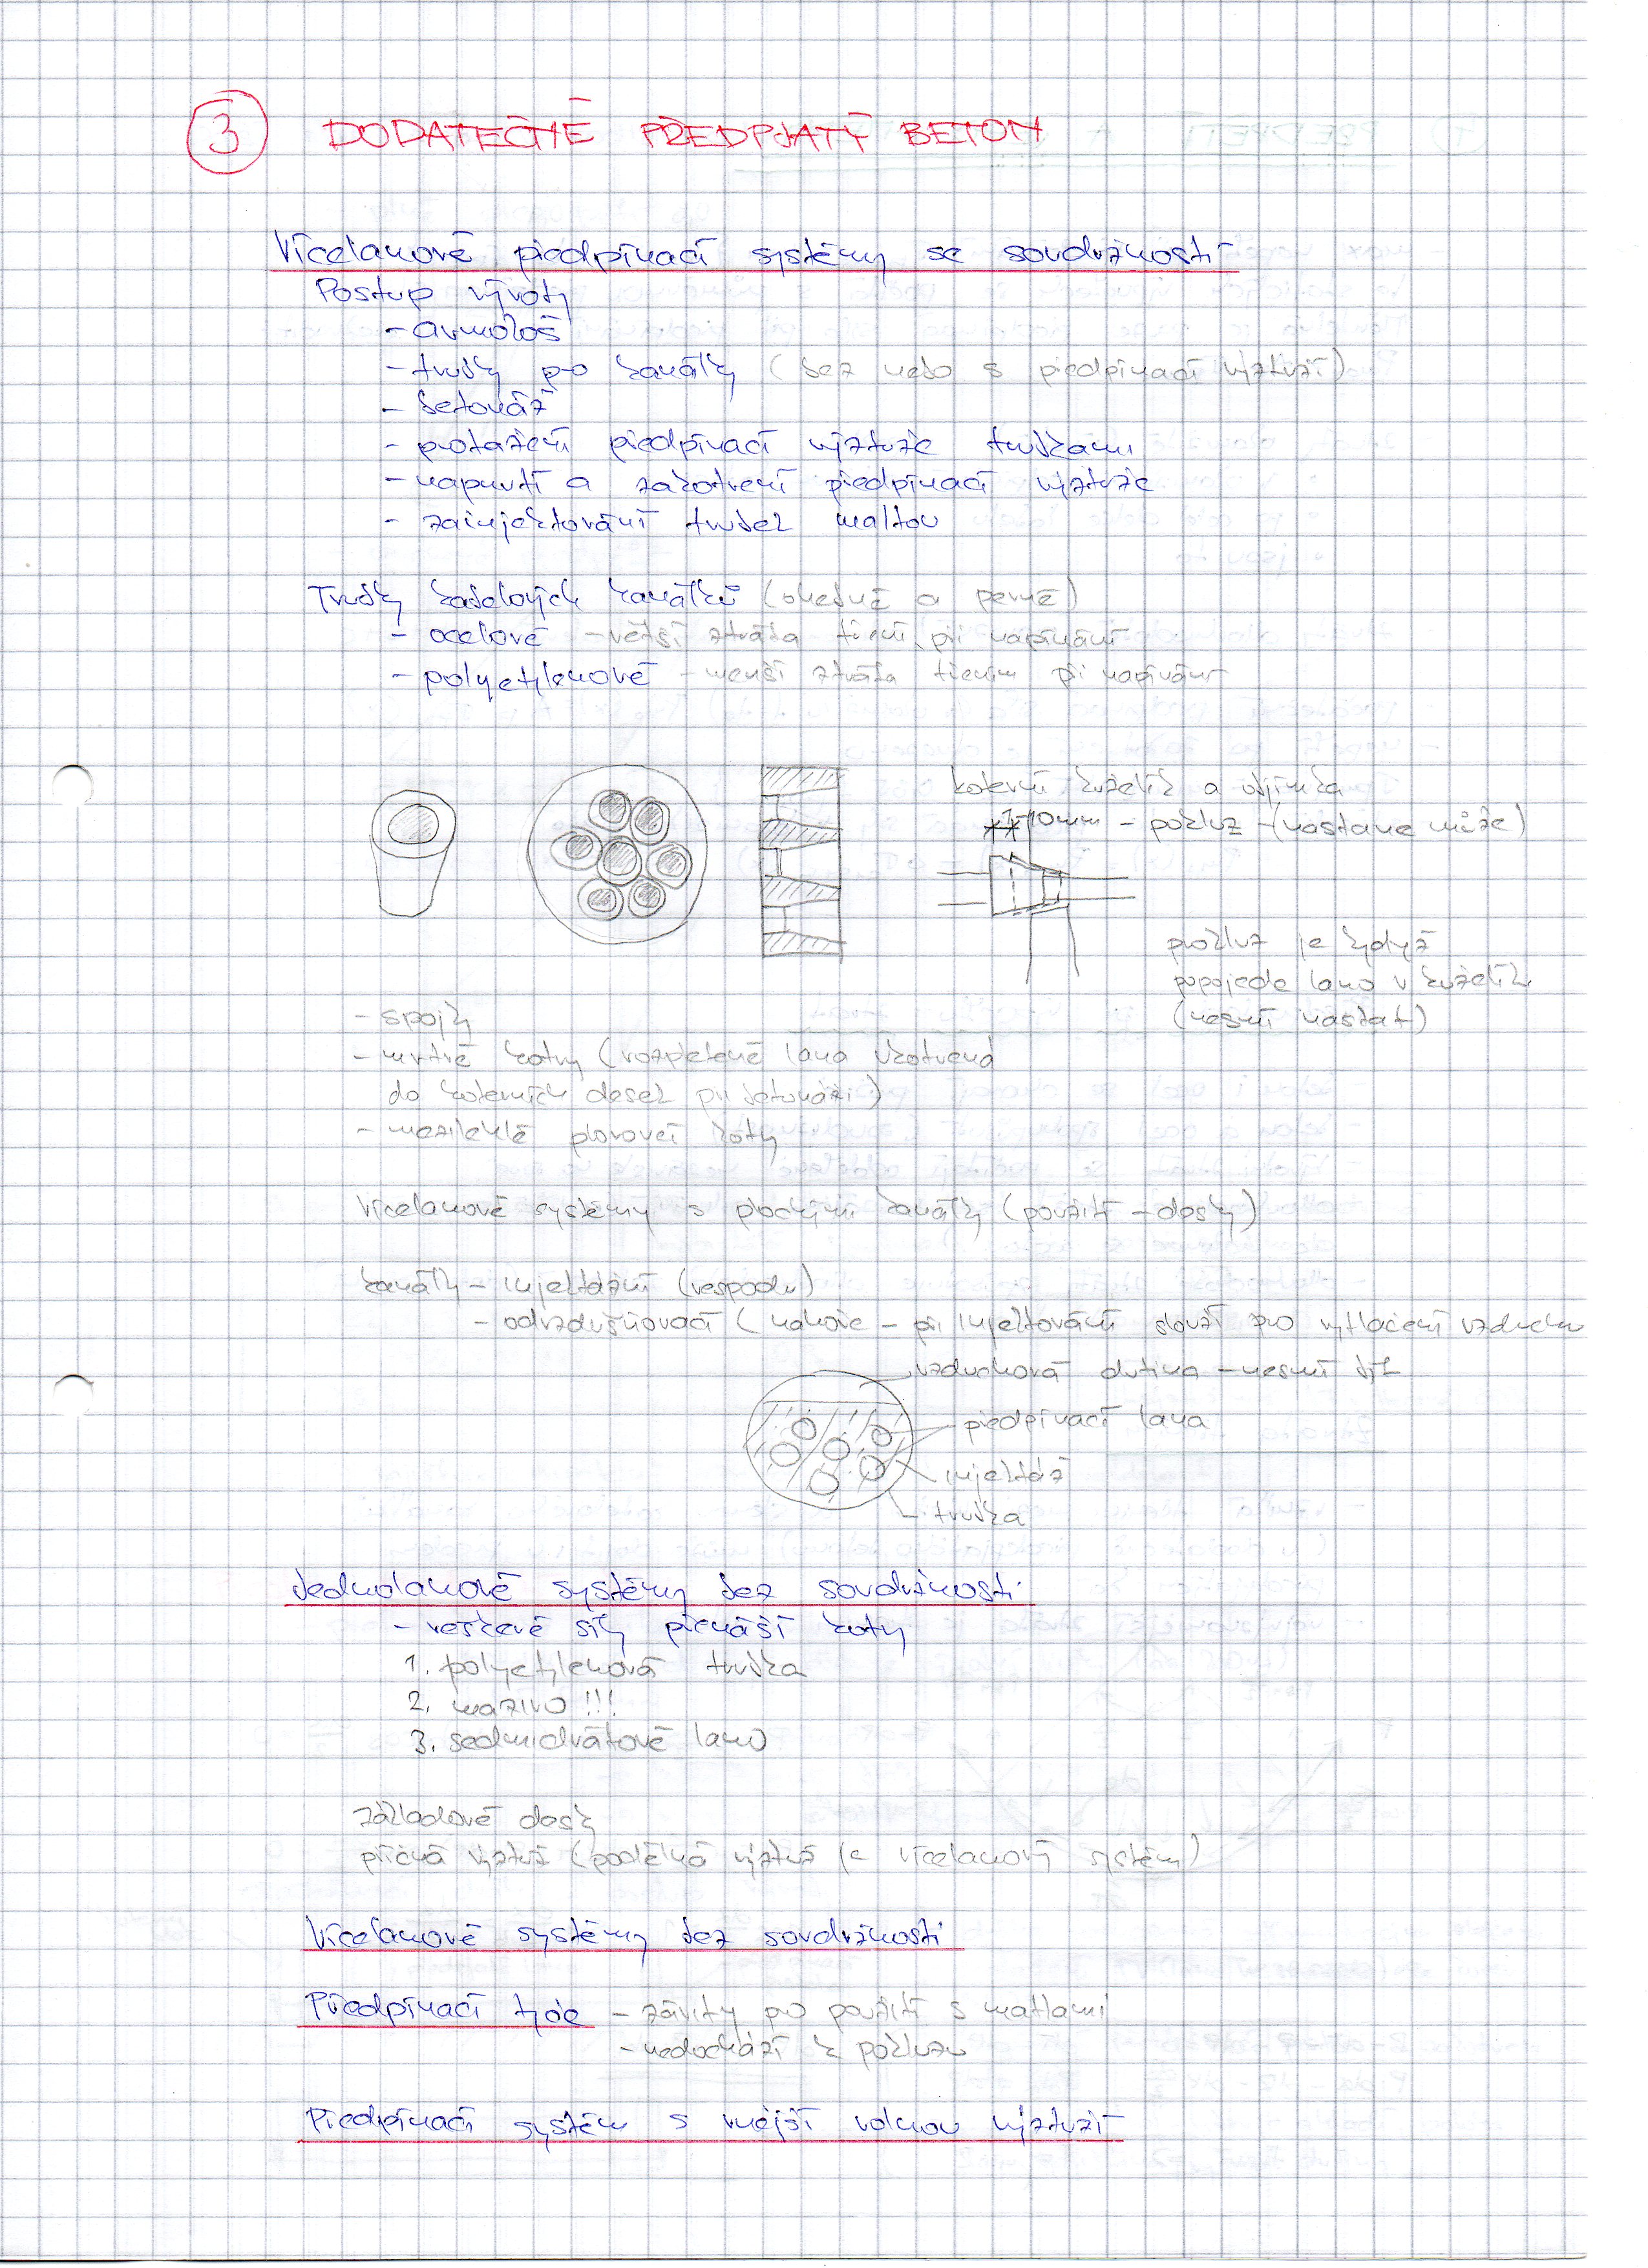 3 DODATEČNĚ PŘEDPJATÝ BETON
Vícelanové předpínací systémy se soudržností
Postup výroby
- armokoš
- trubky pro kanálky (bez nebo s předpínací výztuží)
- betonáž
- protažení předpínací výztuže trubkami
- napnutí a zakotvení předpínací výztuže
- zainjektování trubek maltou
Trubky kabelových kanálků (ohebné a pevné)
- ocelové - větší ztráta tření při napínání
- polyetylenové - menší ztráta třením při napínání
kotevní kuželík a objímka
7-10mm - pokluz - (nastane může)
prokluz je když
popojede lano v kuželík
(nesmí nastat)
- spojky
- mrtvé kotvy (rozpletené lana ukotvená
do kotevních desek při betonáži)
- mezilehlé plovoucí kotvy
Vícelanové systémy s plochými kanálky (použití - desky)
kanálky - injektážní (vespodu)
- odvzdušňovací (nahoře - při injektování slouží pro vytlačení vzduchu
vzduchová dutina - nesmí být
předpínací lana
injektáž
trubka
Jednolanové systémy bez soudržnosti
- veškeré síly přenáší kotvy
1. polyetylenová trubka
2. mazivo !!!
3. sedmidrátové lano
základové desky
příčná výztuž (podélná výztuž je vícelanový systém)
Vícelanové systémy bez soudržnosti
Předpínací tyče - závity pro použití s matkami
- nedochází k pokluzu
Předpínací systém s vnější volnou výztuží